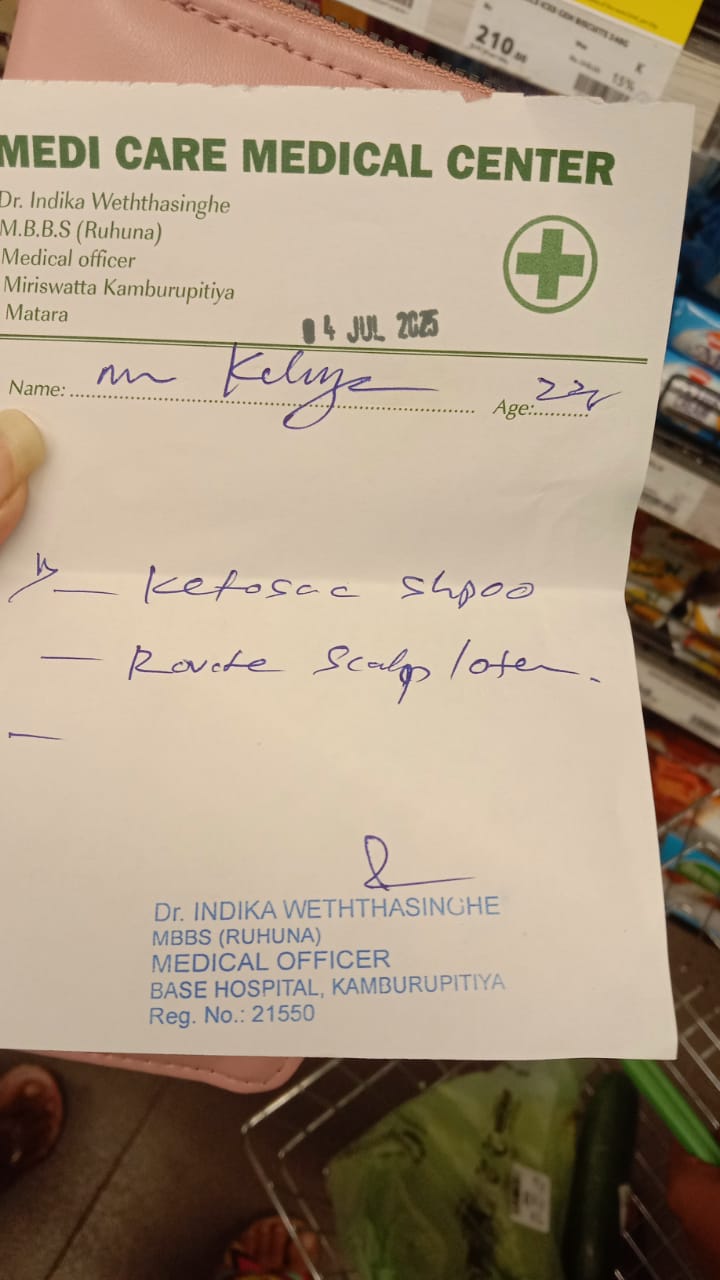 210.00
15%
K
MEDI CARE MEDICAL CENTER
Dr. Indika Weththasinghe
M.B.B.S (Ruhuna)
Medical officer
Miriswatta Kamburupitiya
Matara
04 JUL 2025
Name:
Age:
Ketosac shpoo
Scalp
Dr. INDIKA WETHTHASINGHE
MBBS (RUHUNA)
MEDICAL OFFICER
BASE HOSPITAL, KAMBURUPITIYA
Reg. No.: 21550